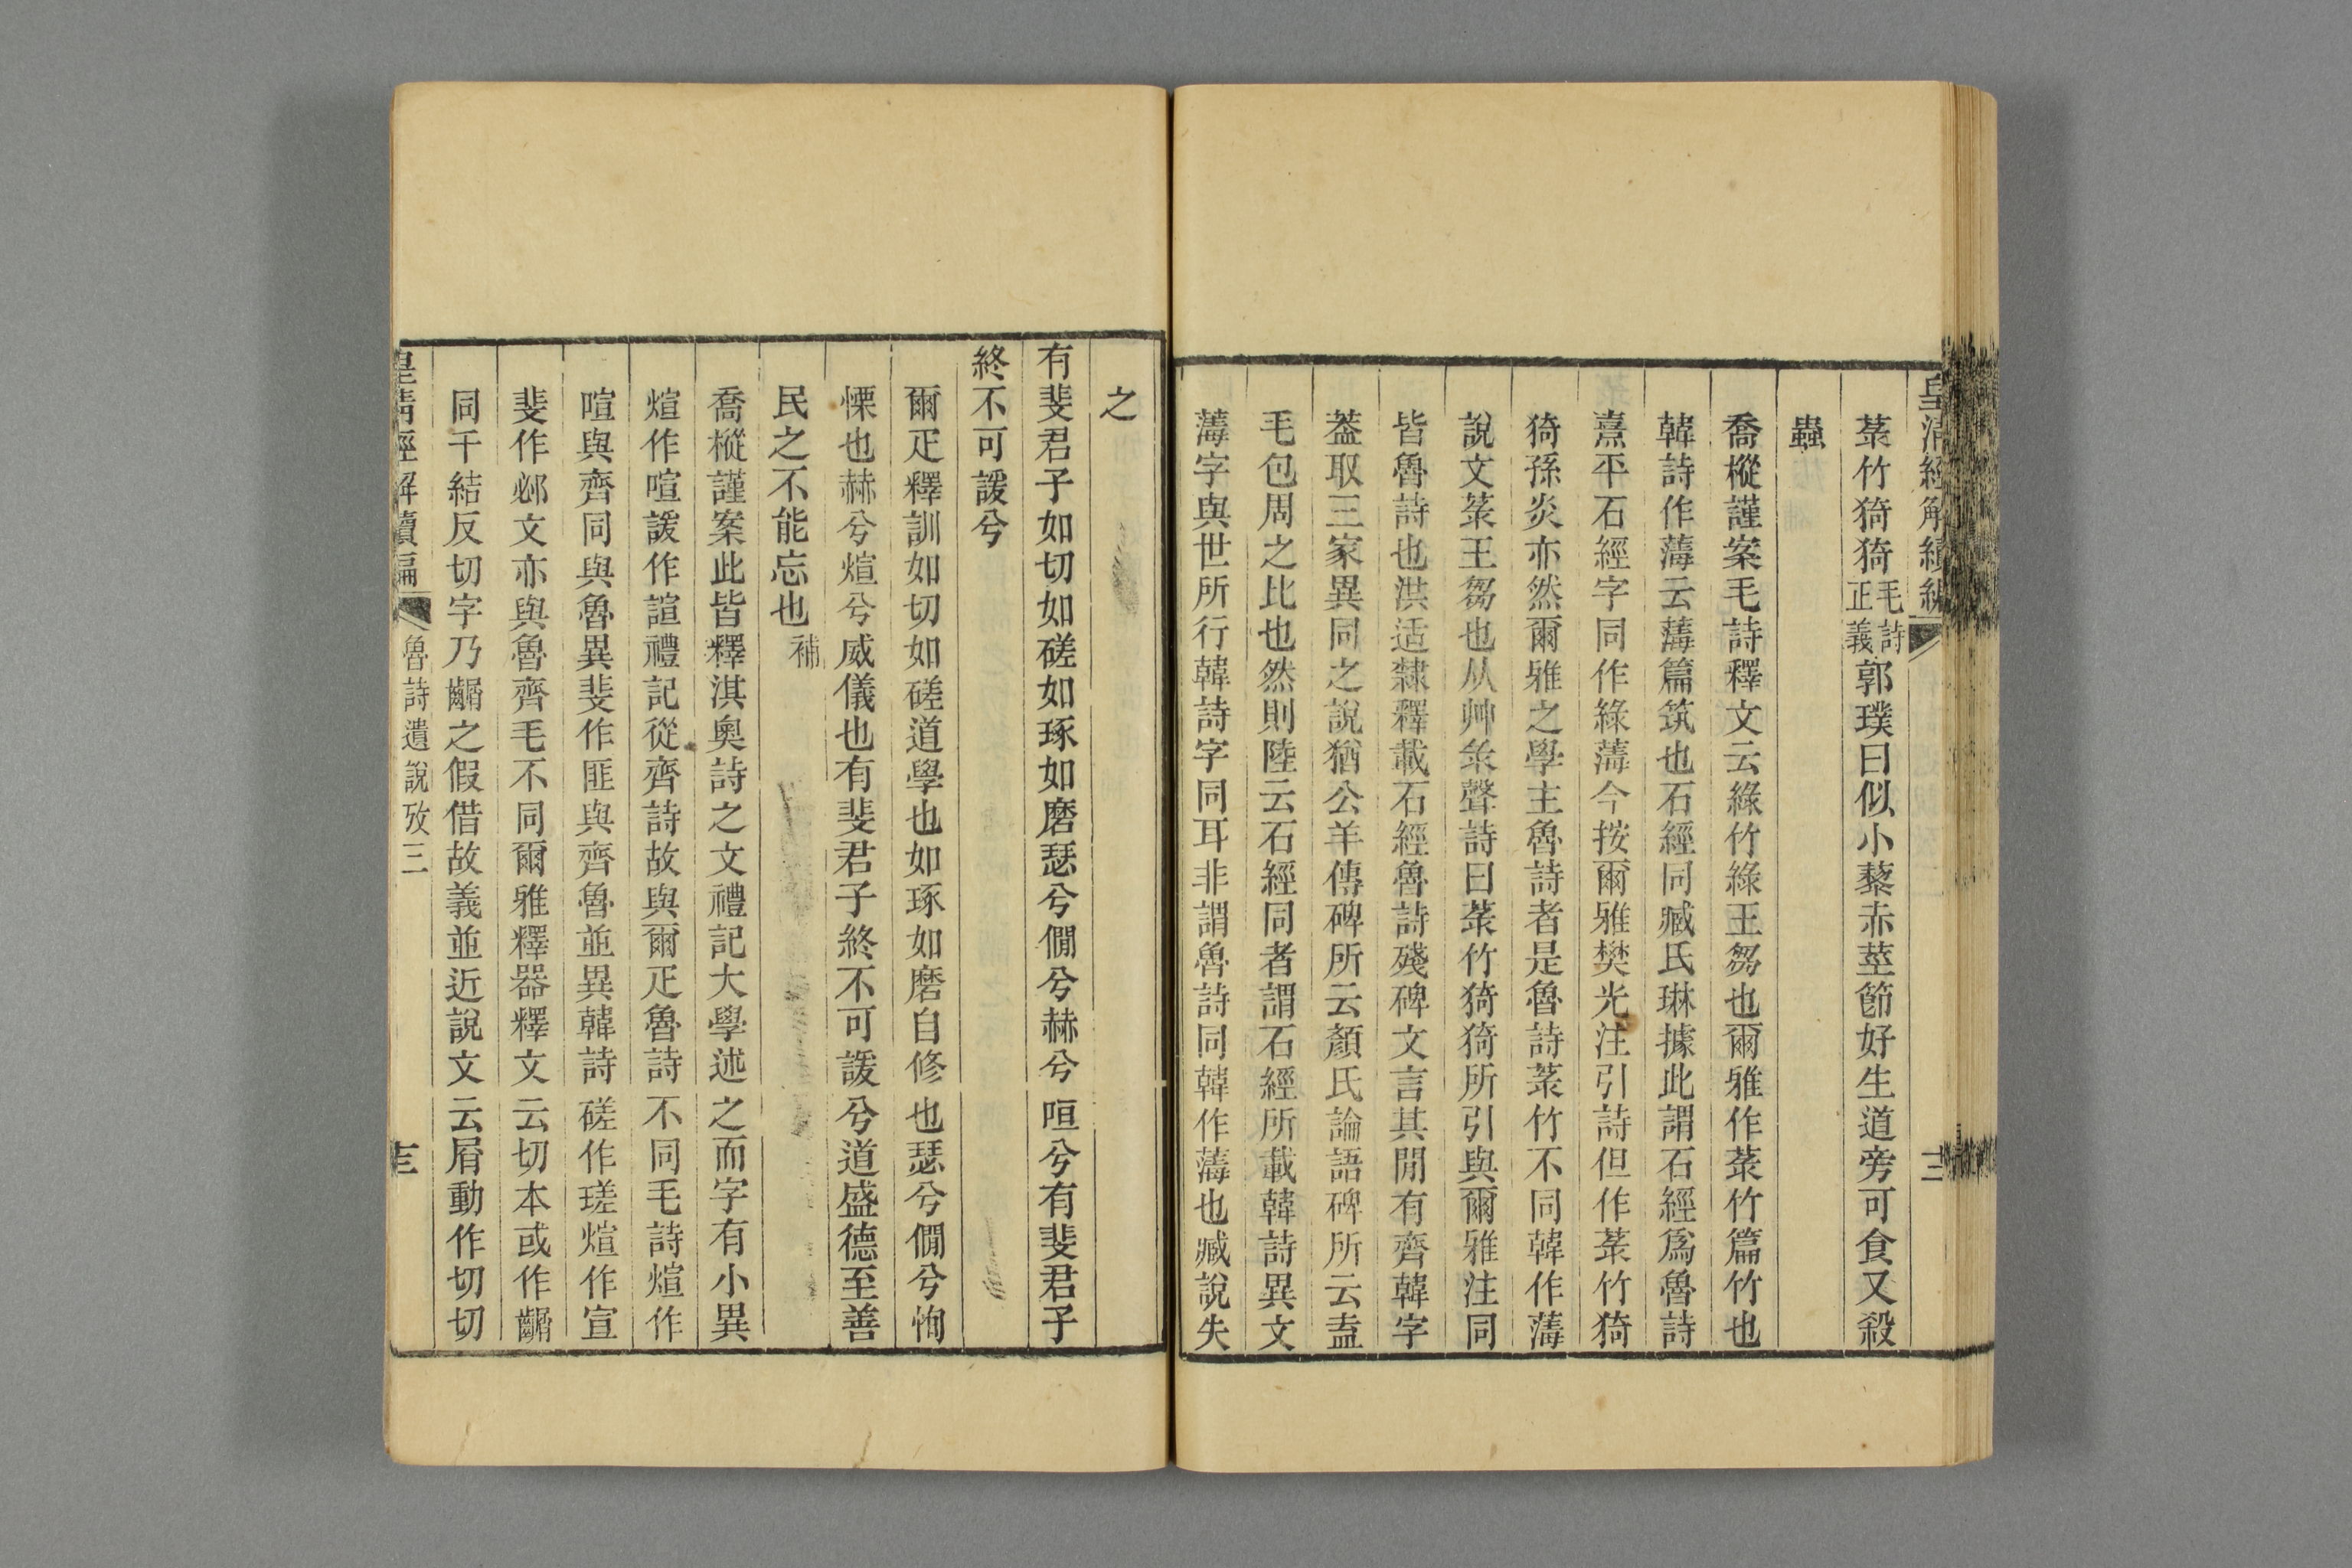 皇清經解續編
菉竹猗猗毛詩正義郭璞曰似小藜赤莖節好生道旁可食又殺
蟲
喬樅謹案毛詩釋文云綠竹綠王芻也爾雅作菉竹篇竹也
韓詩作薄云薄篇筑也石經同臧氏琳據此謂石經爲魯詩
熹平石經字同作綠薄今按爾雅樊光注引詩但作菉竹猗
猗孫炎亦然爾雅之學主魯詩者是魯詩菉竹不同韓作薄
說文菉王芻也从艸彔聲詩曰菉竹猗猗所引與爾雅注同
皆魯詩也洪适隸釋載石經魯詩殘碑文言其閒有齊韓字
葢取三家異同之說猶公羊傳碑所云顏氏論語碑所云盍
毛包周之比也然則陸云石經同者謂石經所載韓詩異文
薄字與世所行韓詩字同耳非謂魯詩同韓作薄也臧說失
之
有斐君子如切如磋如琢如磨瑟兮僩兮赫兮咺兮有斐君子
終不可諼兮
爾疋釋訓如切如磋道學也如琢如磨自修也瑟兮僩兮恂
慄也赫兮烜兮威儀也有斐君子終不可諼兮道盛德至善
民之不能忘也補
喬樅謹案此皆釋淇奧詩之文禮記大學述之而字有小異
烜作喧諼作諠禮記從齊詩故與爾疋魯詩不同毛詩烜作
咺與齊同與魯異斐作匪與齊魯並異韓詩磋作瑳烜作宣
斐作邲文亦與魯齊毛不同爾雅釋器釋文云切本或作䶩
同千結反切字乃䶩之假借故義並近說文云屑動作切切
皇清經解續編
魯詩遺說攷三